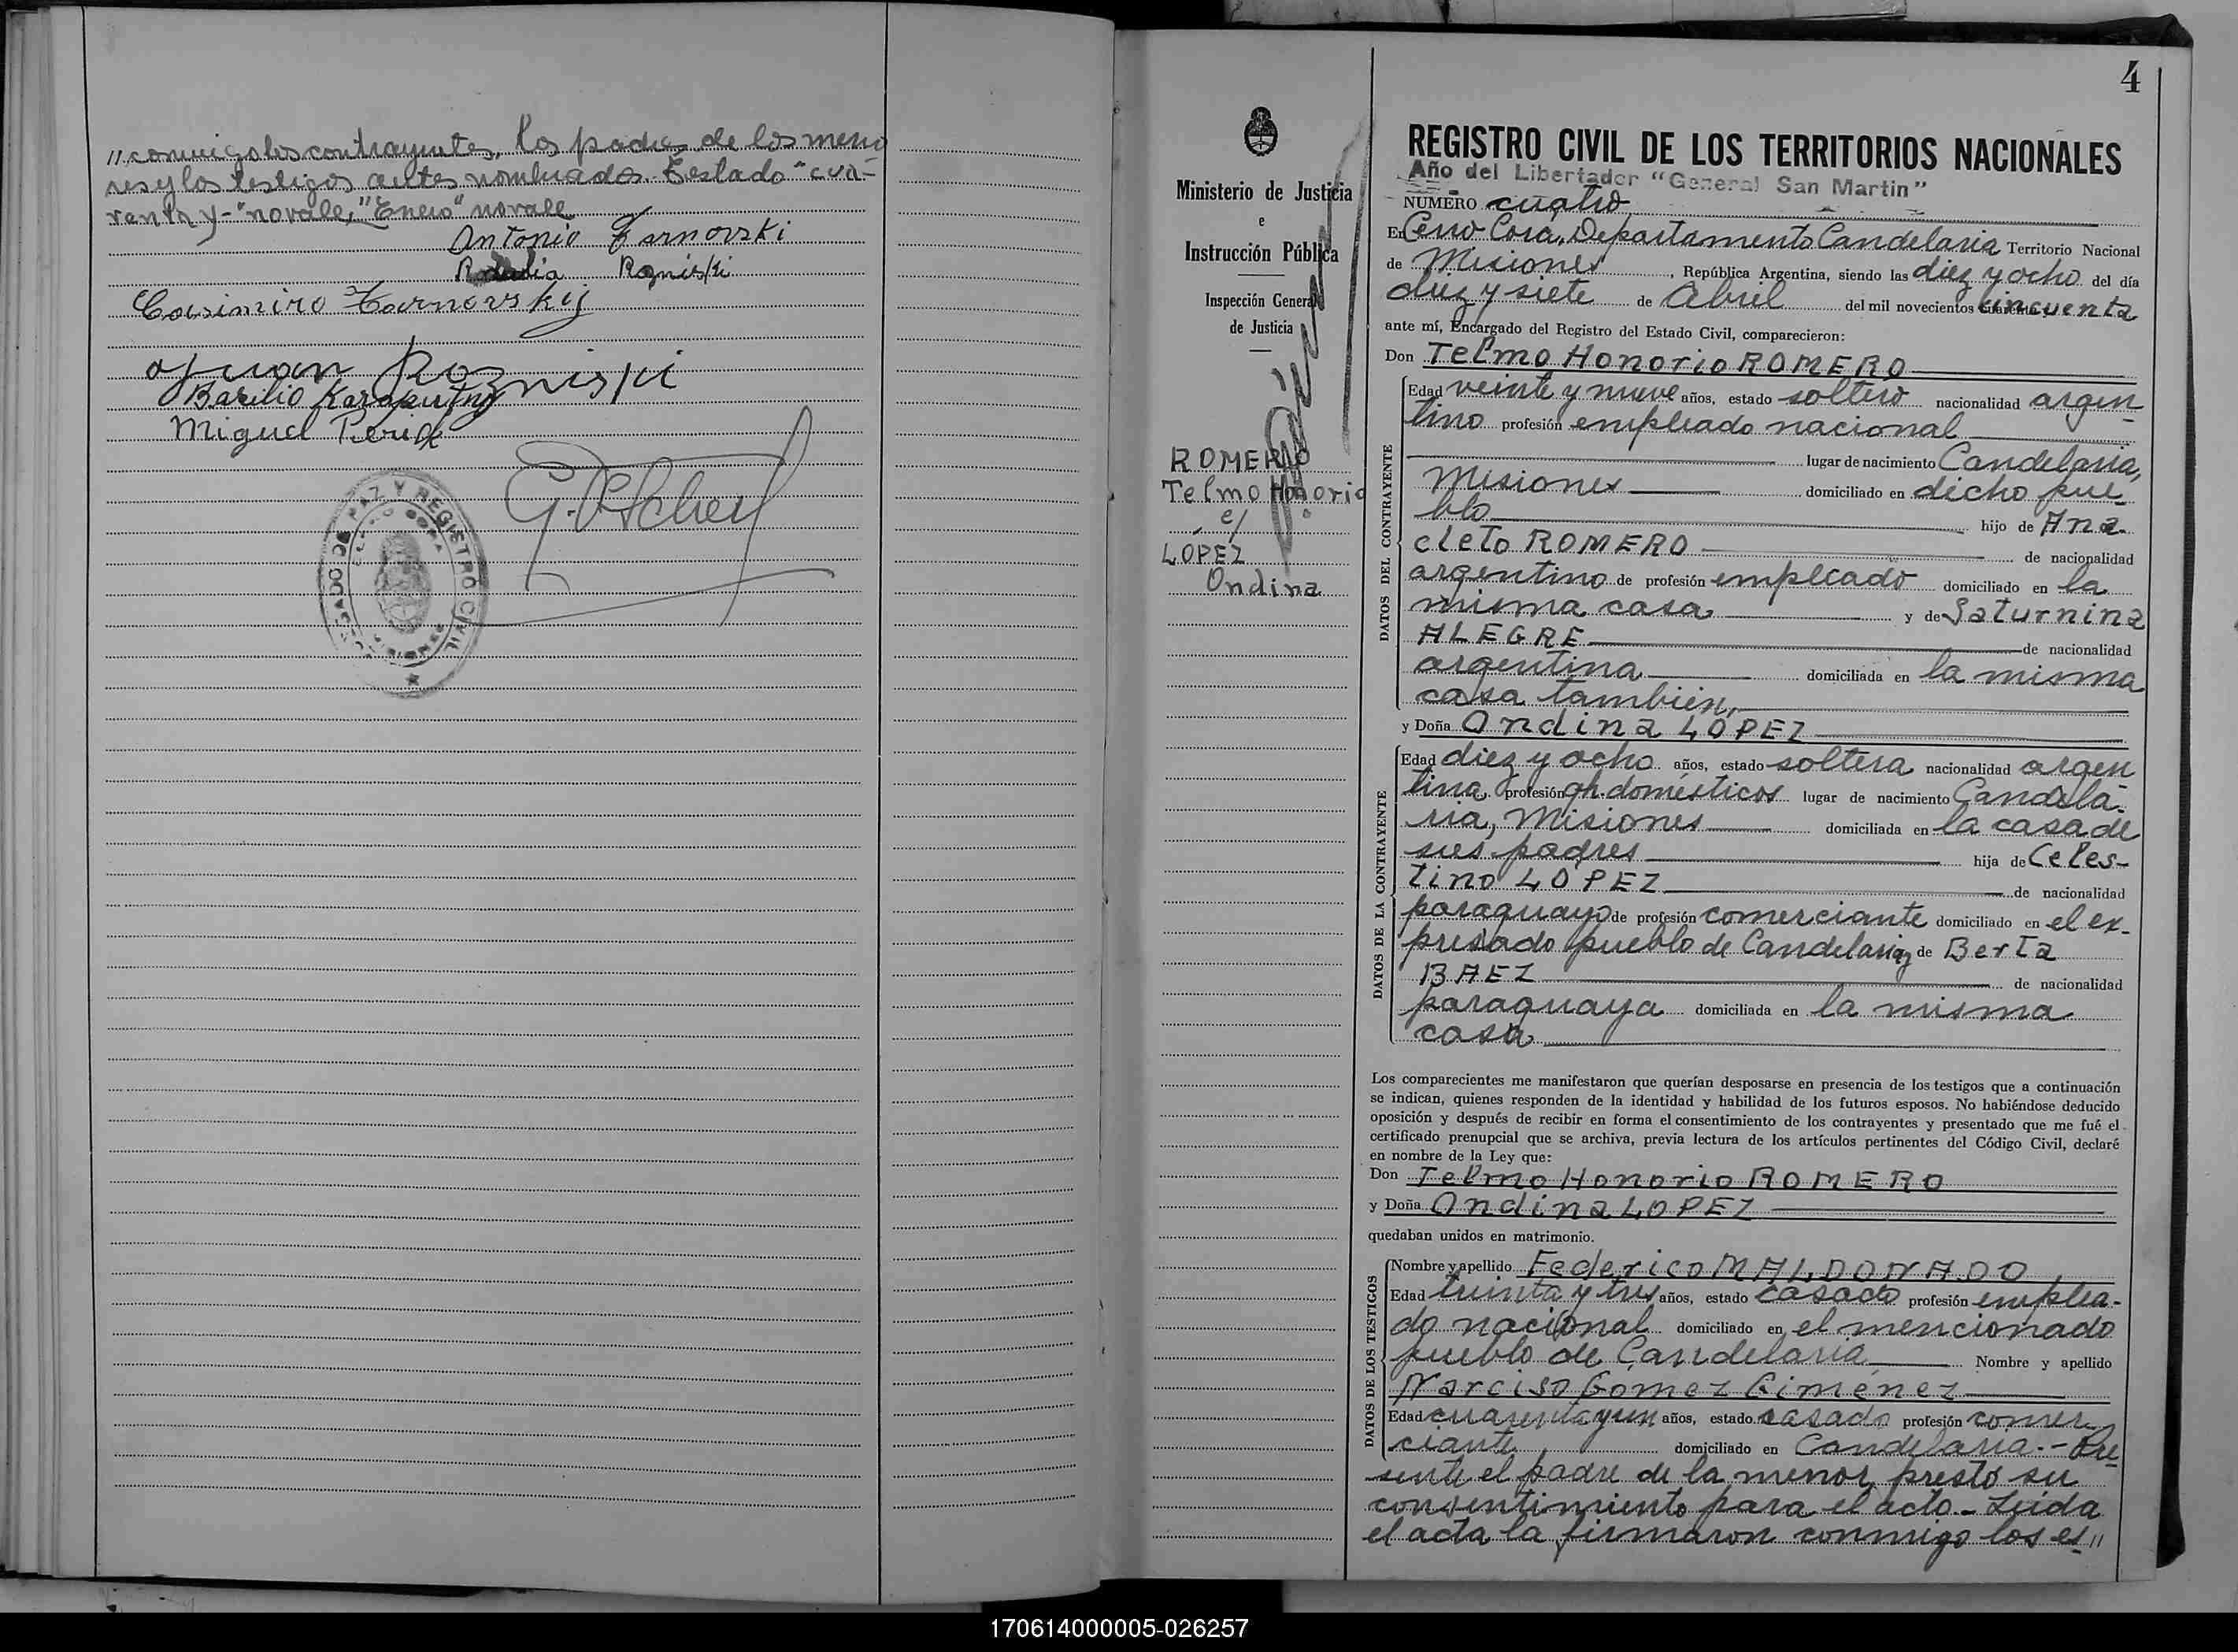 "conmigo los contrayentes, los padres de los meno
res y los testigos antes nombrados. Testado "cua-
renta y-" no vale, "Enero" no vale
Antonio Tarnovski
Rognişki
Casimiro Tarnovskij
Juan Rozniski
Basilio
Miguel
JUZGADO DE PAZ Y REGISTRO CIVIL
CERRO CORA
MISIONES
4
Ministerio de Justicia
e
Instrucción Pública
Inspección General
de Justicia
ROMERO
Telmo Honorio
e/
LOPEZ
Ondina
REGISTRO CIVIL DE LOS TERRITORIOS NACIONALES
Año del Libertador "General San Martin"
NUMERO cuatro
En Cerro Corá, Departamento Candelaria Territorio Nacional
de Misiones, República Argentina, siendo las diez y ocho del día
diez y siete de Abril del mil novecientos cincuenta
ante mí, Encargado del Registro del Estado Civil, comparecieron:
Don Telmo Honorio ROMERO
DATOS DEL CONTRAYENTE
Edad veinte y nueve años, estado soltero nacionalidad argen-
tino profesión empleado nacional
lugar de nacimiento Candelaria,
Misiones domiciliado en dicho pue-
blo hijo de Ana-
cleto ROMERO de nacionalidad
argentino de profesión empleado domiciliado en la
misma casa y de Saturnina
ALEGRE de nacionalidad
argentina domiciliada en la misma
casa también,
y Doña Ondina LOPEZ
DATOS DE LA CONTRAYENTE
Edad diez y ocho años, estado soltera nacionalidad argen-
tina profesión qh. domésticos lugar de nacimiento Candela-
ria, Misiones domiciliada en la casa de
sus padres hija de Celes-
tino LOPEZ de nacionalidad
paraguayo de profesión comerciante domiciliado en el ex-
presado pueblo de Candelaria y de Berta
BAEZ de nacionalidad
paraguaya domiciliada en la misma
casa
Los comparecientes me manifestaron que querían desposarse en presencia de los testigos que a continuación
se indican, quienes responden de la identidad y habilidad de los futuros esposos. No habiéndose deducido
oposición y después de recibir en forma el consentimiento de los contrayentes y presentado que me fué el
certificado prenupcial que se archiva, previa lectura de los artículos pertinentes del Código Civil, declaré
en nombre de la Ley que:
Don Telmo Honorio ROMERO
y Doña Ondina LOPEZ
quedaban unidos en matrimonio.
DATOS DE LOS TESTIGOS
Nombre y apellido Federico MALDONADO
Edad treinta y tres años, estado casado profesión emplea-
do nacional domiciliado en el mencionado
pueblo de Candelaria Nombre y apellido
Narciso Gomez Gimenez
Edad cuarenta y un años, estado casado profesión comer-
ciante domiciliado en Candelaria.- Pre-
sente el padre de la menor, prestó su
consentimiento para el acto.- Leida
el acta la firmaron conmigo los es"
170614000005-026257